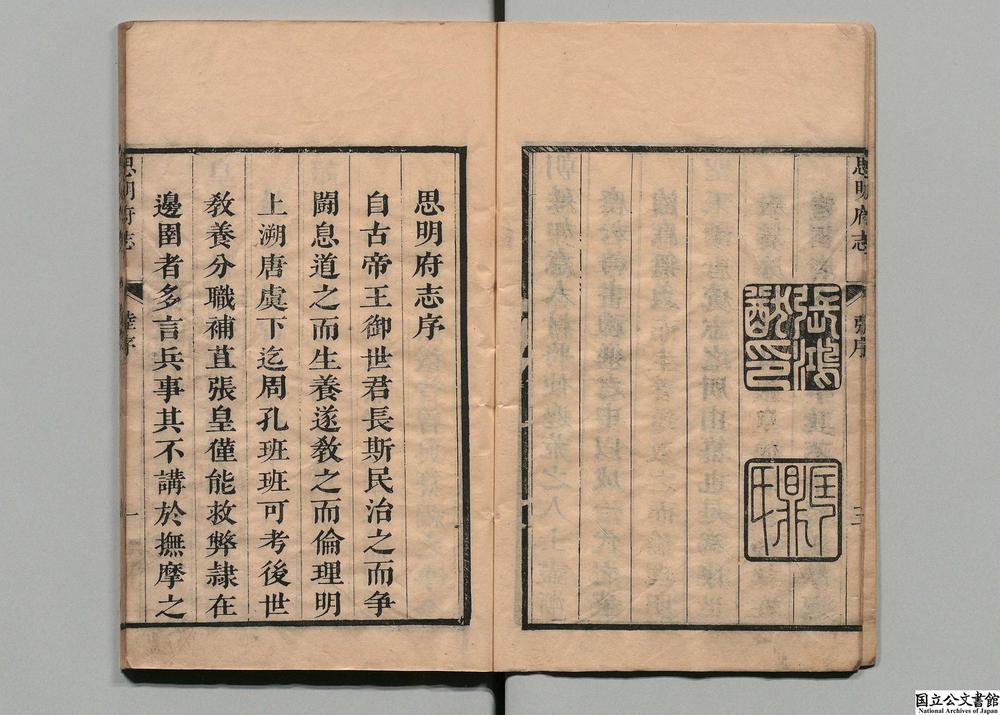 思明府志
張序
三
張鴻
猷印
思明府志序
自古帝王御世君長斯民治之而爭
鬭息道之而生養遂敎之而倫理明
上溯唐虞下迄周孔班班可考後世
敎養分職補苴張皇僅能救弊隷在
邊圉者多言兵事其不講於撫摩之
思明府志
陸序
一
国立公文書館
National Archives of Japan